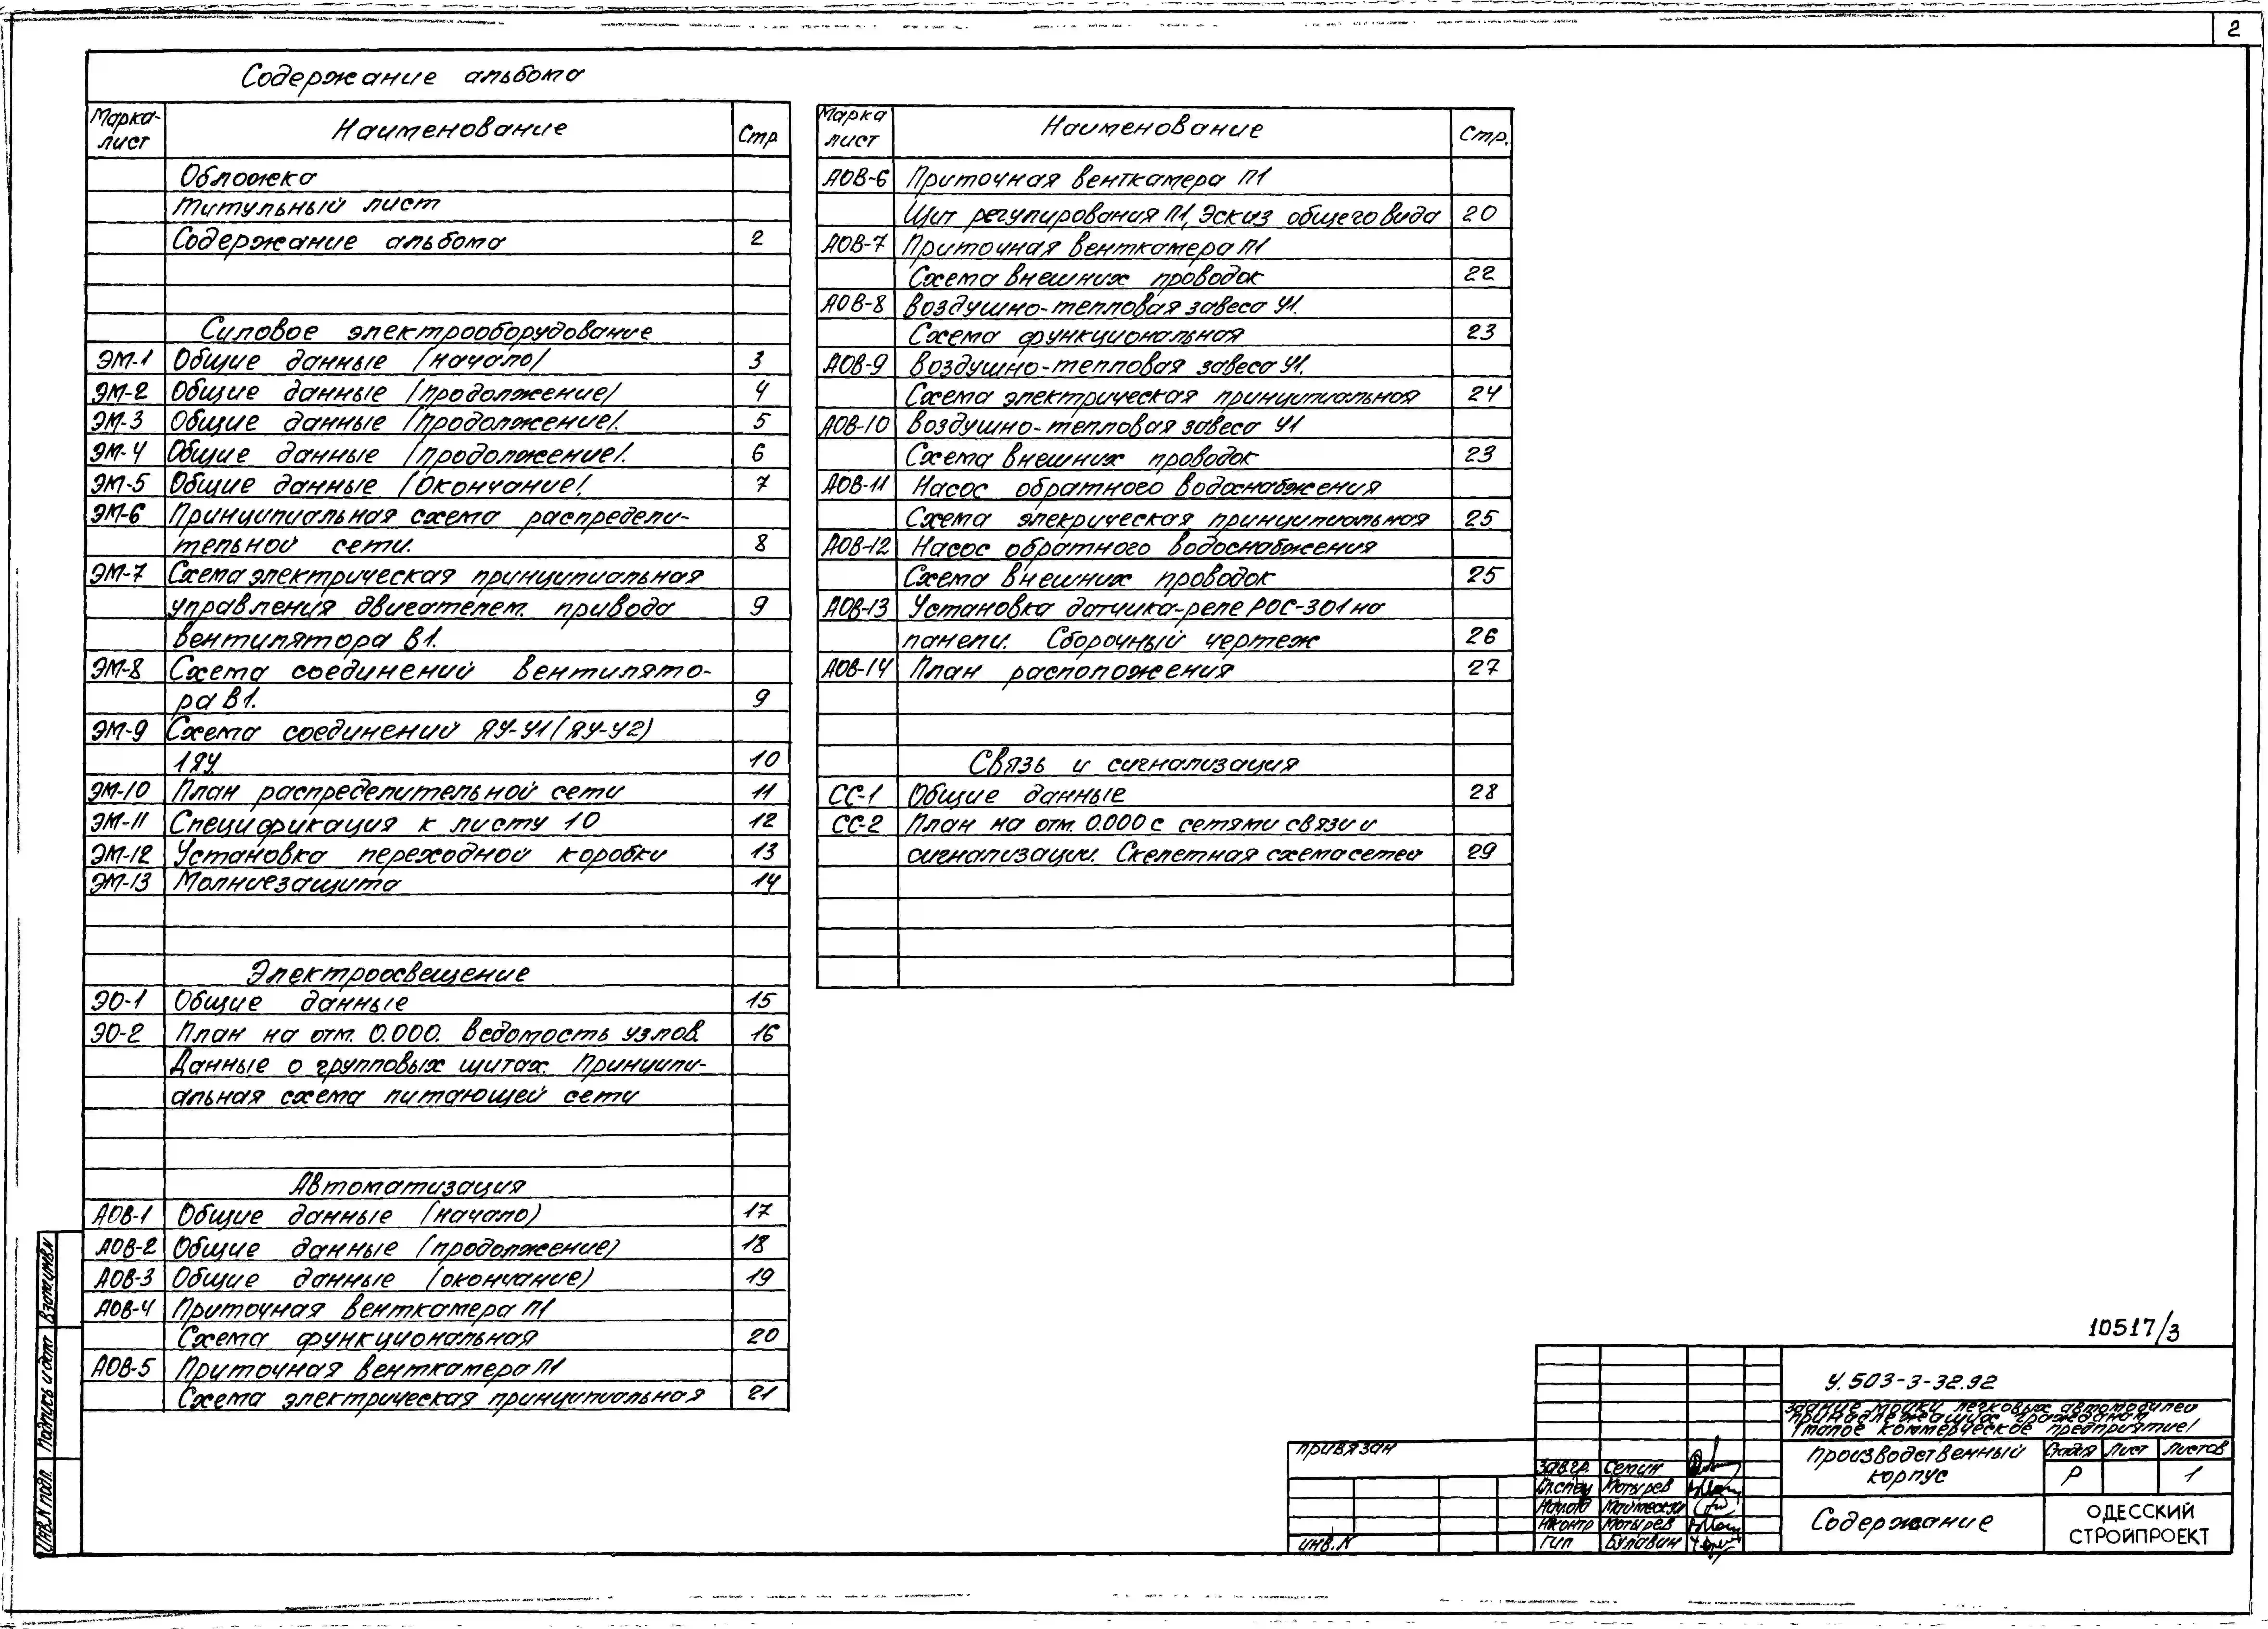 2
Содержание альбома
Марка-лист Наименование Стр
Обложка
Титульный лист
Содержание альбома 2
Силовое электрооборудование
ЭМ-1 Общие данные /начало/ 3
ЭМ-2 Общие данные /продолжение/ 4
ЭМ-3 Общие данные /продолжение/. 5
ЭМ-4 Общие данные /продолжение/. 6
ЭМ-5 Общие данные /окончание/. 7
ЭМ-6 Принципиальная схема распредели-
тельной сети. 8
ЭМ-7 Схема электрическая принципиальная
управления двигателем. привода 9
вентилятора В1.
ЭМ-8 Схема соединений вентилято-
ра В1. 9
ЭМ-9 Схема соединений ЯУ-У1(ЯУ-У2)
1ЯУ. 10
ЭМ-10 План распределительной сети 11
ЭМ-11 Спецификация к листу 10 12
ЭМ-12 Установка переходной коробки 13
ЭМ-13 Молниезащита 14
Электроосвещение
ЭО-1 Общие данные 15
ЭО-2 План на отм. 0.000. Ведомость узлов. 16
Данные о групповых щитах. Принципи-
альная схема питающей сети
Автоматизация
АОВ-1 Общие данные (начало) 17
АОВ-2 Общие данные (продолжение) 18
АОВ-3 Общие данные (окончание) 19
АОВ-4 Приточная венткамера П1
Схема функциональная 20
АОВ-5 Приточная венткамера П1
Схема электрическая принципиальная 21
Марка лист Наименование Стр.
АОВ-6 Приточная венткамера П1
Щит регулирования П1, Эскиз общего вида 20
АОВ-7 Приточная венткамера П1
Схема внешних проводок 22
АОВ-8 Воздушно-тепловая завеса У1.
Схема функциональная 23
АОВ-9 Воздушно-тепловая завеса У1.
Схема электрическая принципиальная 24
АОВ-10 Воздушно-тепловая завеса У1
Схема внешних проводок 23
АОВ-11 Насос обратного водоснабжения
Схема элекрическая принципиальная 25
АОВ-12 Насос обратного водоснабжения
Схема внешних проводок 25
АОВ-13 Установка датчика-реле РОС-301 на
панели. Сборочный чертеж 26
АОВ-14 План расположения 27
Связь и сигнализация
СС-1 Общие данные 28
СС-2 План на отм. 0.000 с сетями связи и
сигнализации. Скелетная схема сетей 29
Взам.инв.N
Подпись и дат
Инв.N подл.
10517/3
У.503-3-32.92
Здание мойки легковых автомобилей
принадлежащих гражданам
/малое коммерческое предприятие/
Производственный корпус
Стадия Лист Листов
Р 1
Содержание
ОДЕССКИЙ
СТРОЙПРОЕКТ
Привязан
инв.N
Зав.гр. Семик
Гл.спец Мотырев
Нач.отд
Н.контр Мотырев
ГИП Булавин